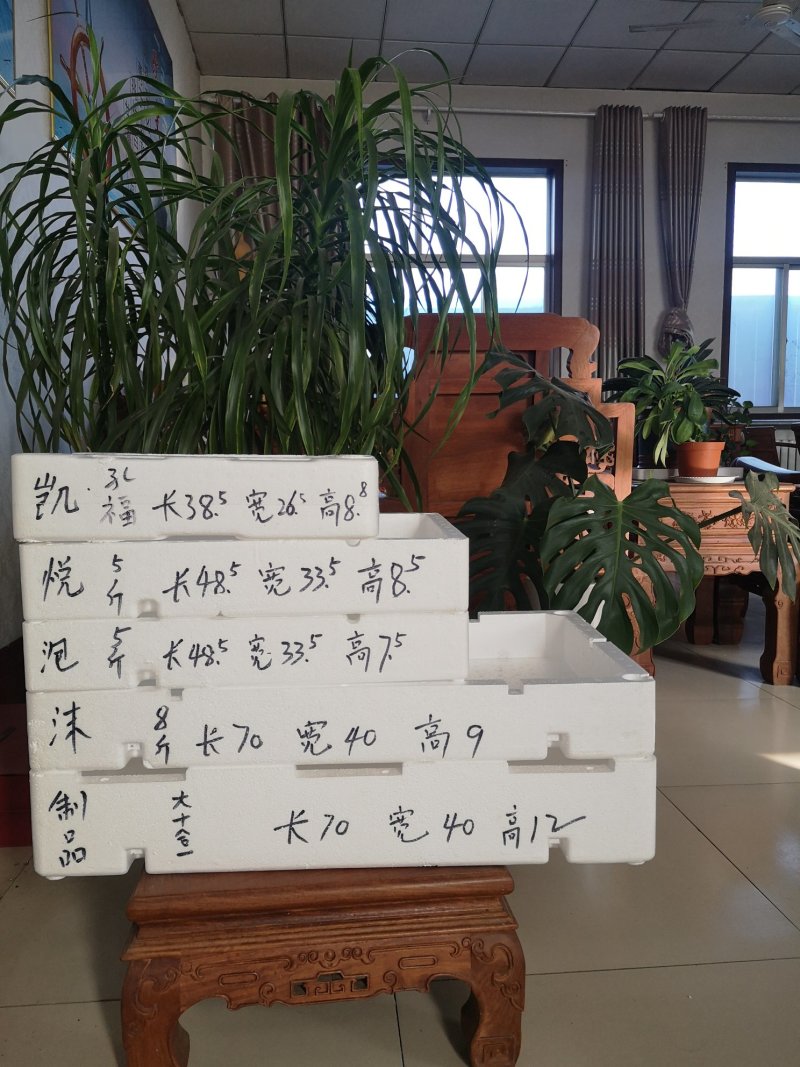 凯 孔福 长38.5 宽26.5 高8.8
悦 5斤 长48.5 宽33.5 高8.5
泡 5斤 长48.5 宽33.5 高7.5
沫 8斤 长70 宽40 高9
制品 大十合 长70 宽40 高12